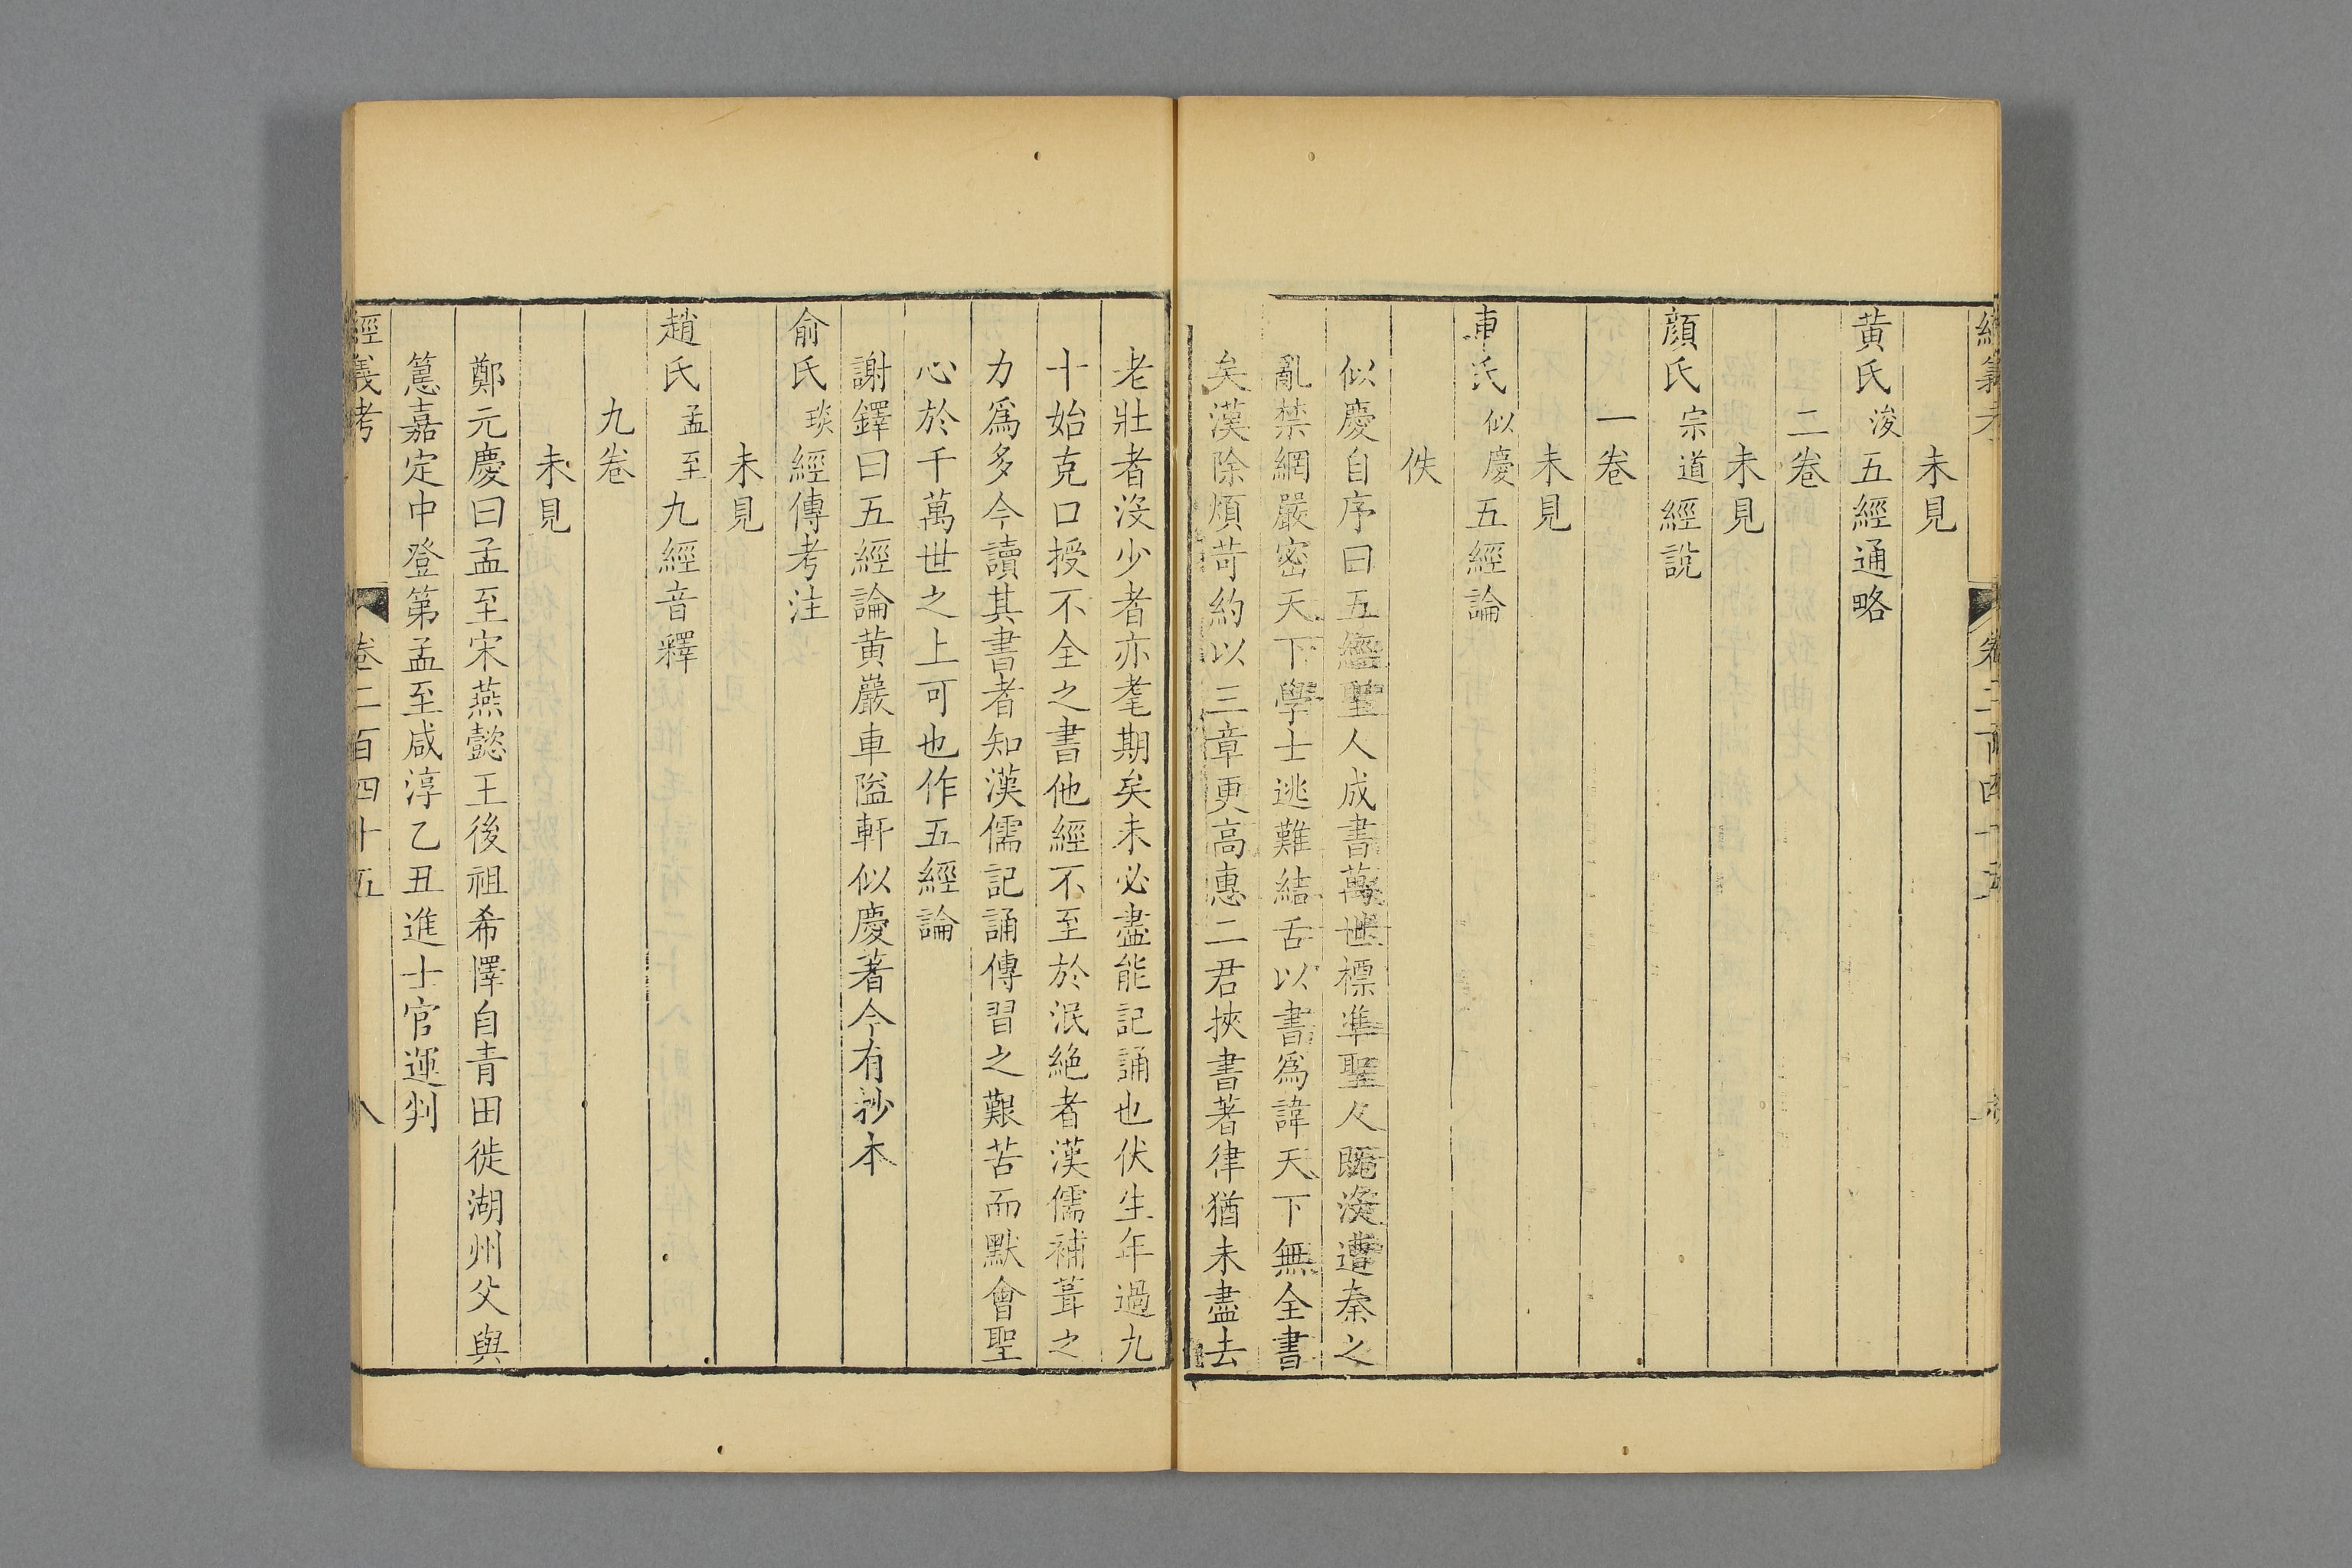 未見
黃氏浚五經通略
二卷
未見
顔氏宗道經說
一卷
未見
車氏似慶五經論
佚
似慶自序曰五經聖人成書萬世標準聖人旣沒遭秦之
亂禁網嚴密天下學士逃難結舌以書爲諱天下無全書
矣漢除煩苛約以三章更高惠二君挾書著律猶未盡去
老壯者沒少者亦耄期矣未必盡能記誦也伏生年過九
十始克口授不全之書他經不至於泯絕者漢儒補葺之
力爲多今讀其書者知漢儒記誦傳習之艱苦而默會聖
心於千萬世之上可也作五經論
謝鐸曰五經論黃巖車隘軒似慶著今有抄本
俞氏琰經傳考注
未見
趙氏孟至九經音釋
九卷
未見
鄭元慶曰孟至宋燕懿王後祖希懌自青田徙湖州父與
𥲅嘉定中登第孟至咸淳乙丑進士官運判
經義考 卷二百四十五 八